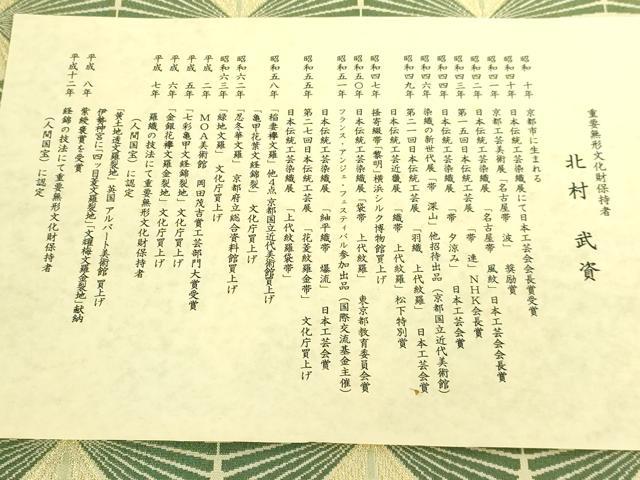 重要無形文化財保持者
北村 武資
昭和 十年 京都市に生まれる
昭和四十年 日本伝統工芸染織展にて日本工芸会会長賞受賞
昭和四一年 京都工芸美術展「名古屋帯 波」 奨励賞
昭和四二年 日本伝統工芸染織展「名古屋帯 風紋」日本工芸会会長賞
昭和四三年 日本伝統工芸染織展「帯 漣」NHK会長賞
昭和四三年 第一五回日本伝統工芸展「帯 夕涼み」 日本工芸会賞
昭和四六年 染織の新世代展「帯 深山」他招待出品(京都国立近代美術館)
昭和四九年 第二一回日本伝統工芸展「羽織 上代紋羅」 日本工芸会賞
日本伝統工芸近畿展「織帯 上代紋羅」松下特別賞
昭和四七年 経寄綴帯「黎明」横浜シルク博物館買上げ
昭和五〇年 日本伝統工芸染織展「袋帯 上代紋羅」 東京都教育委員会賞
昭和五一年 フランス・アンジェ・フェスティバル参加出品(国際交流基金主催)
日本伝統工芸染織展「紬平織帯 爆流」 日本工芸会賞
昭和五五年 第二七回日本伝統工芸展「花菱紋羅金帯」 文化庁買上げ
日本伝統工芸染織展「上代紋羅袋帯」
昭和五八年 「稲妻襷文羅」他4点 京都国立近代美術館買上げ
「亀甲花葉文経錦裂」 文化庁買上げ
昭和六二年 「忍冬華文羅」京都府立総合資料館買上げ
昭和六三年 「緑地文羅」 文化庁買上げ
平成 二年 MOA美術館 岡田茂吉賞工芸部門大賞受賞
平成 五年 「七彩亀甲文経錦裂地」文化庁買上げ
平成 六年 「金銀花襷文羅金裂地」文化庁買上げ
平成 七年 羅織の技法にて重要無形文化財保持者
(人間国宝)に認定
「黄土地透文羅裂地」英国 アルバート美術館 買上げ
伊勢神宮に「四ッ目菱文羅裂地」「文羅梅文羅金裂地」献納
平成 八年 紫綬褒賞を受賞
平成十二年 経錦の技法にて重要無形文化財保持者
(人間国宝)に認定